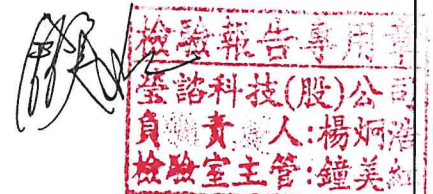 檢驗報告專用章
瑩諮科技(股)公司
負責人:楊炯浩
檢驗室主管:鐘美